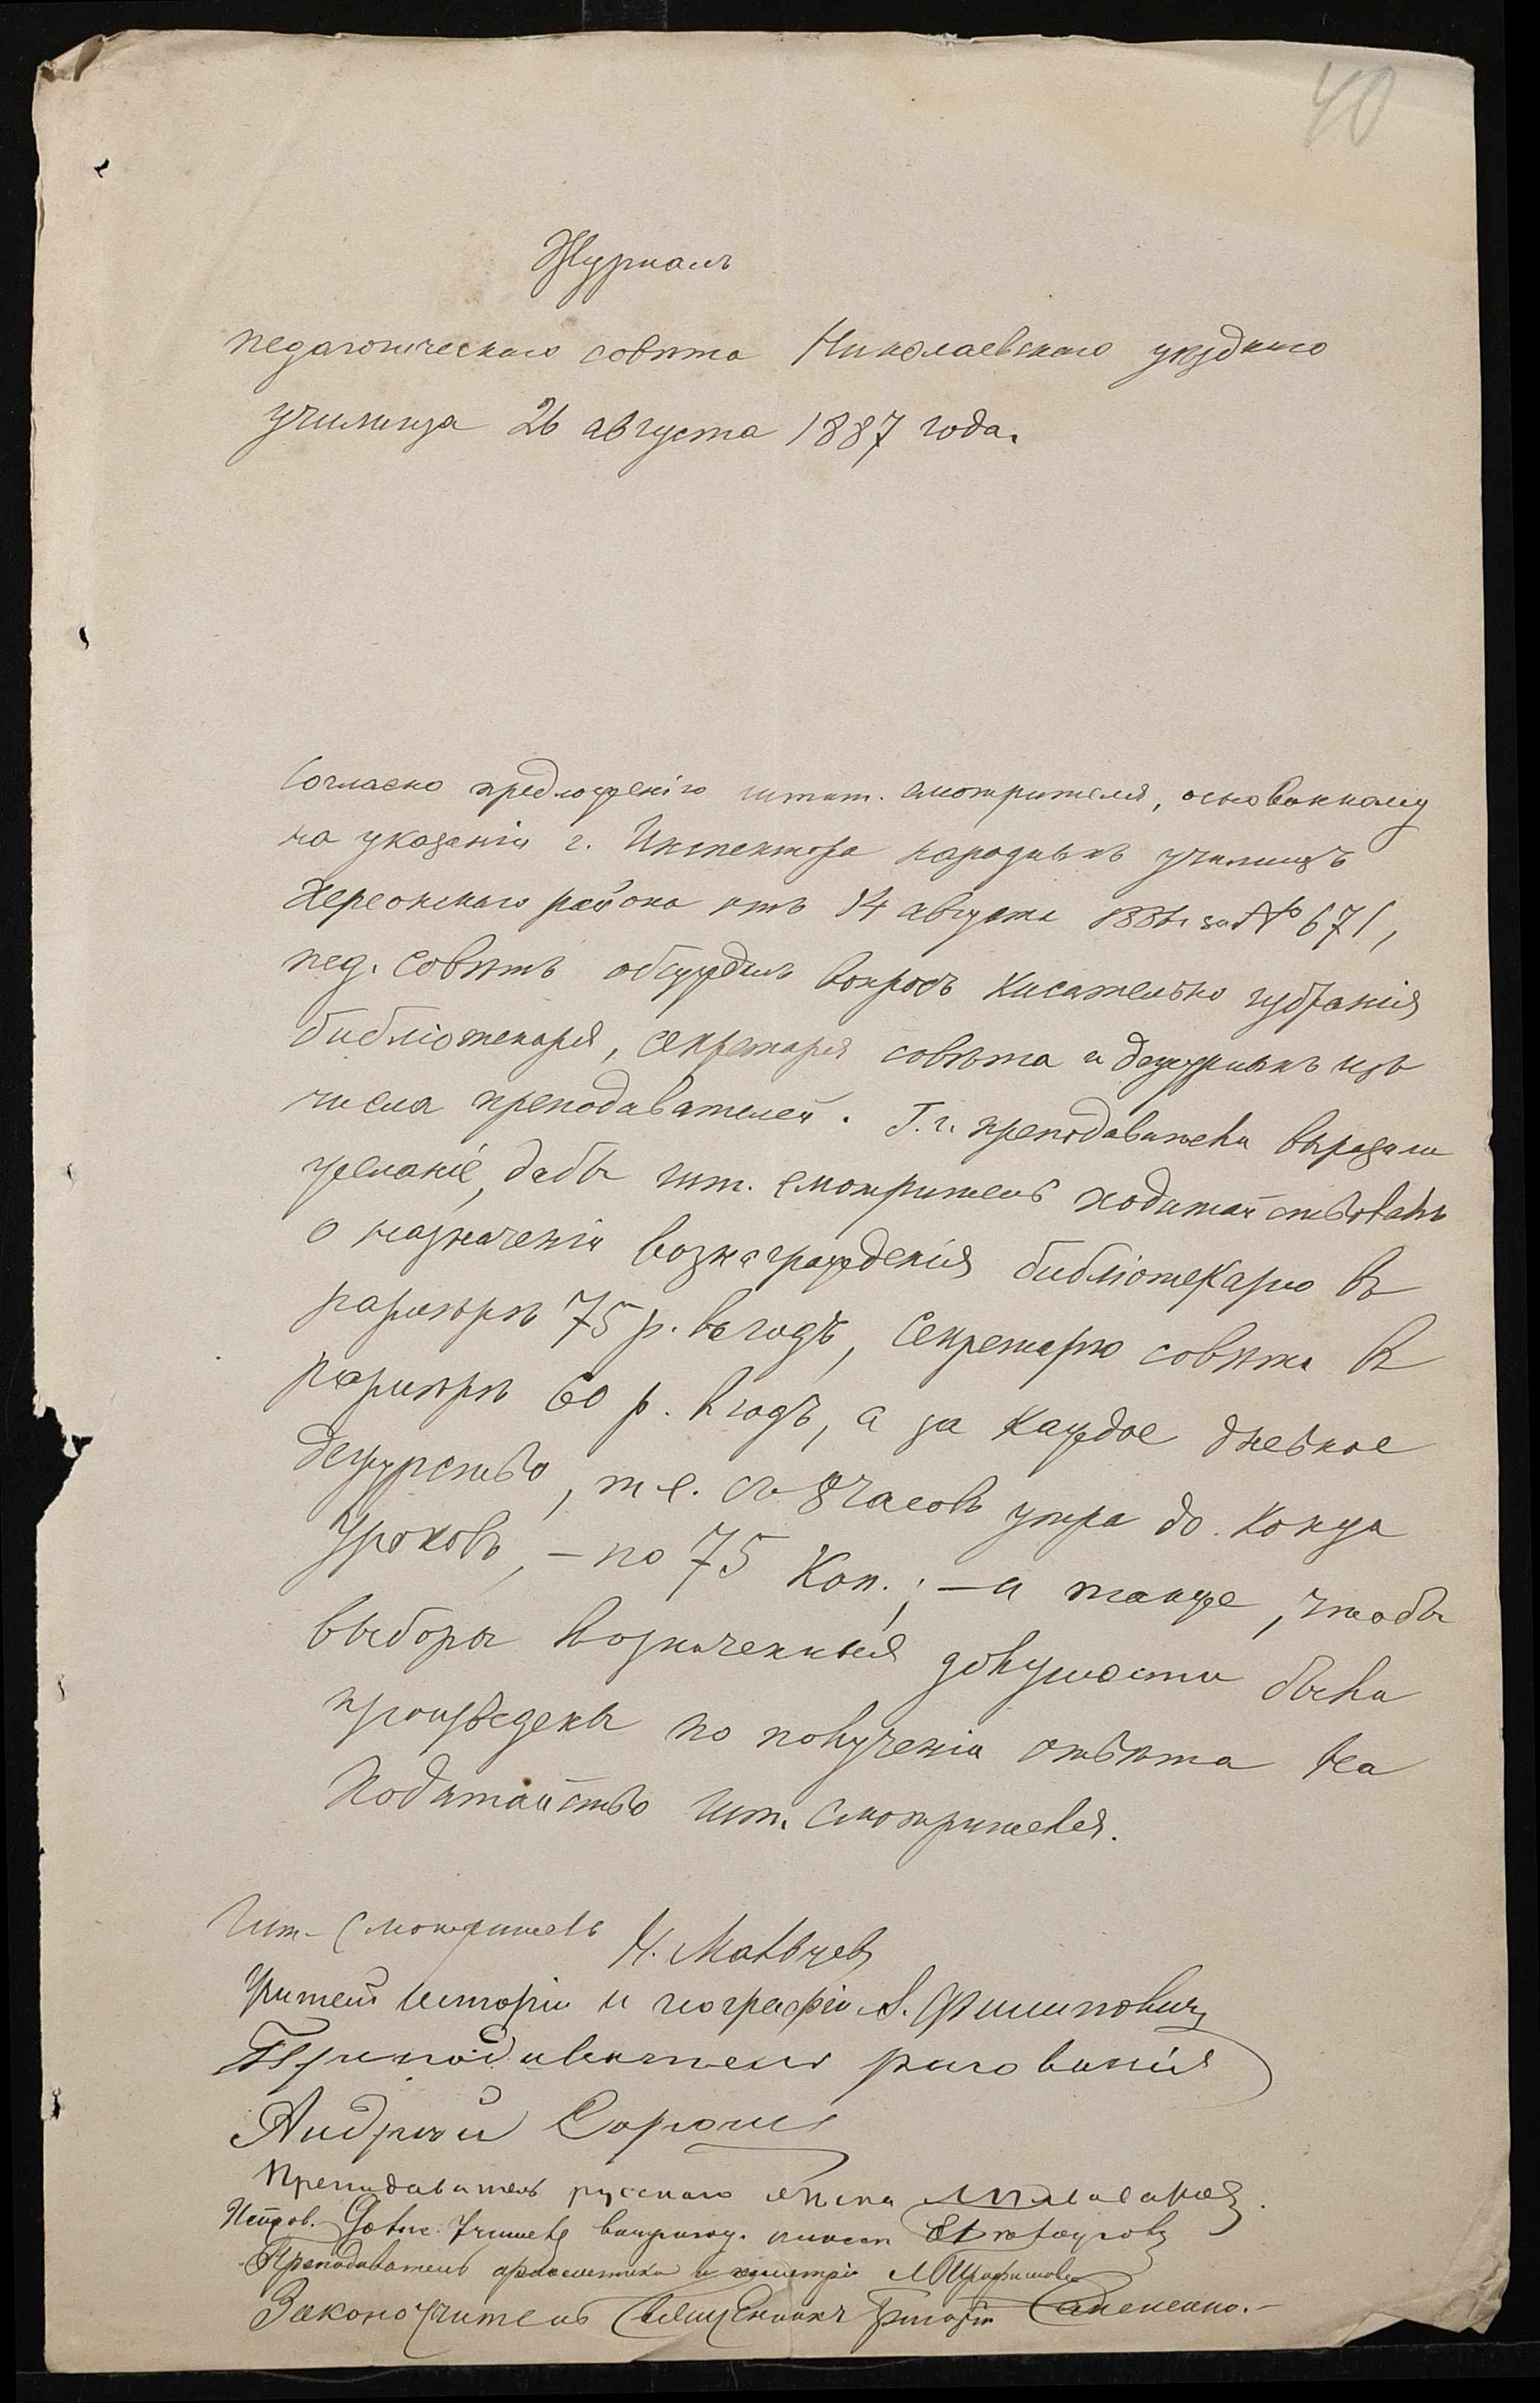 40
Журналъ
педагогическаго совѣта Николаевскаго уѣзднаго
училища 26 августа 1887 года.
Согласно предложенію штат. смотрителя, основанному
на указаніи г. Инспектора народныхъ училищъ
Херсонскаго района отъ 14 августа 1887 г. за № 671,
пед. совѣтъ обсуждалъ вопросъ касательно избранія
библіотекаря, секретаря совѣта и дежурныхъ изъ
числа преподавателей. Г.г. преподаватели выразили
желаніе, дабы шт. смотритель ходатайствовалъ
о назначеніи вознагражденія библіотекарю въ
размѣрѣ 75 р. въ годъ, секретарю совѣта въ
размѣрѣ 60 р. въ годъ, а за каждое дневное
дежурство, т. е. съ 8 часовъ утра до конца
уроковъ, – по 75 коп.; – а также, чтобы
выборы на означенныя должности были
произведены по полученіи отвѣта на
ходатайство шт. смотрителя.
Шт. Смотритель Н. Матвѣевъ
Учитель исторіи и географіи А. Филиповичъ
Преподаватель рисованія
Андрей
Преподаватель русскаго языка
Исправ. должн. Учителя
Преподаватель ариѳметики и геометріи
Законоучитель Священникъ Григорій